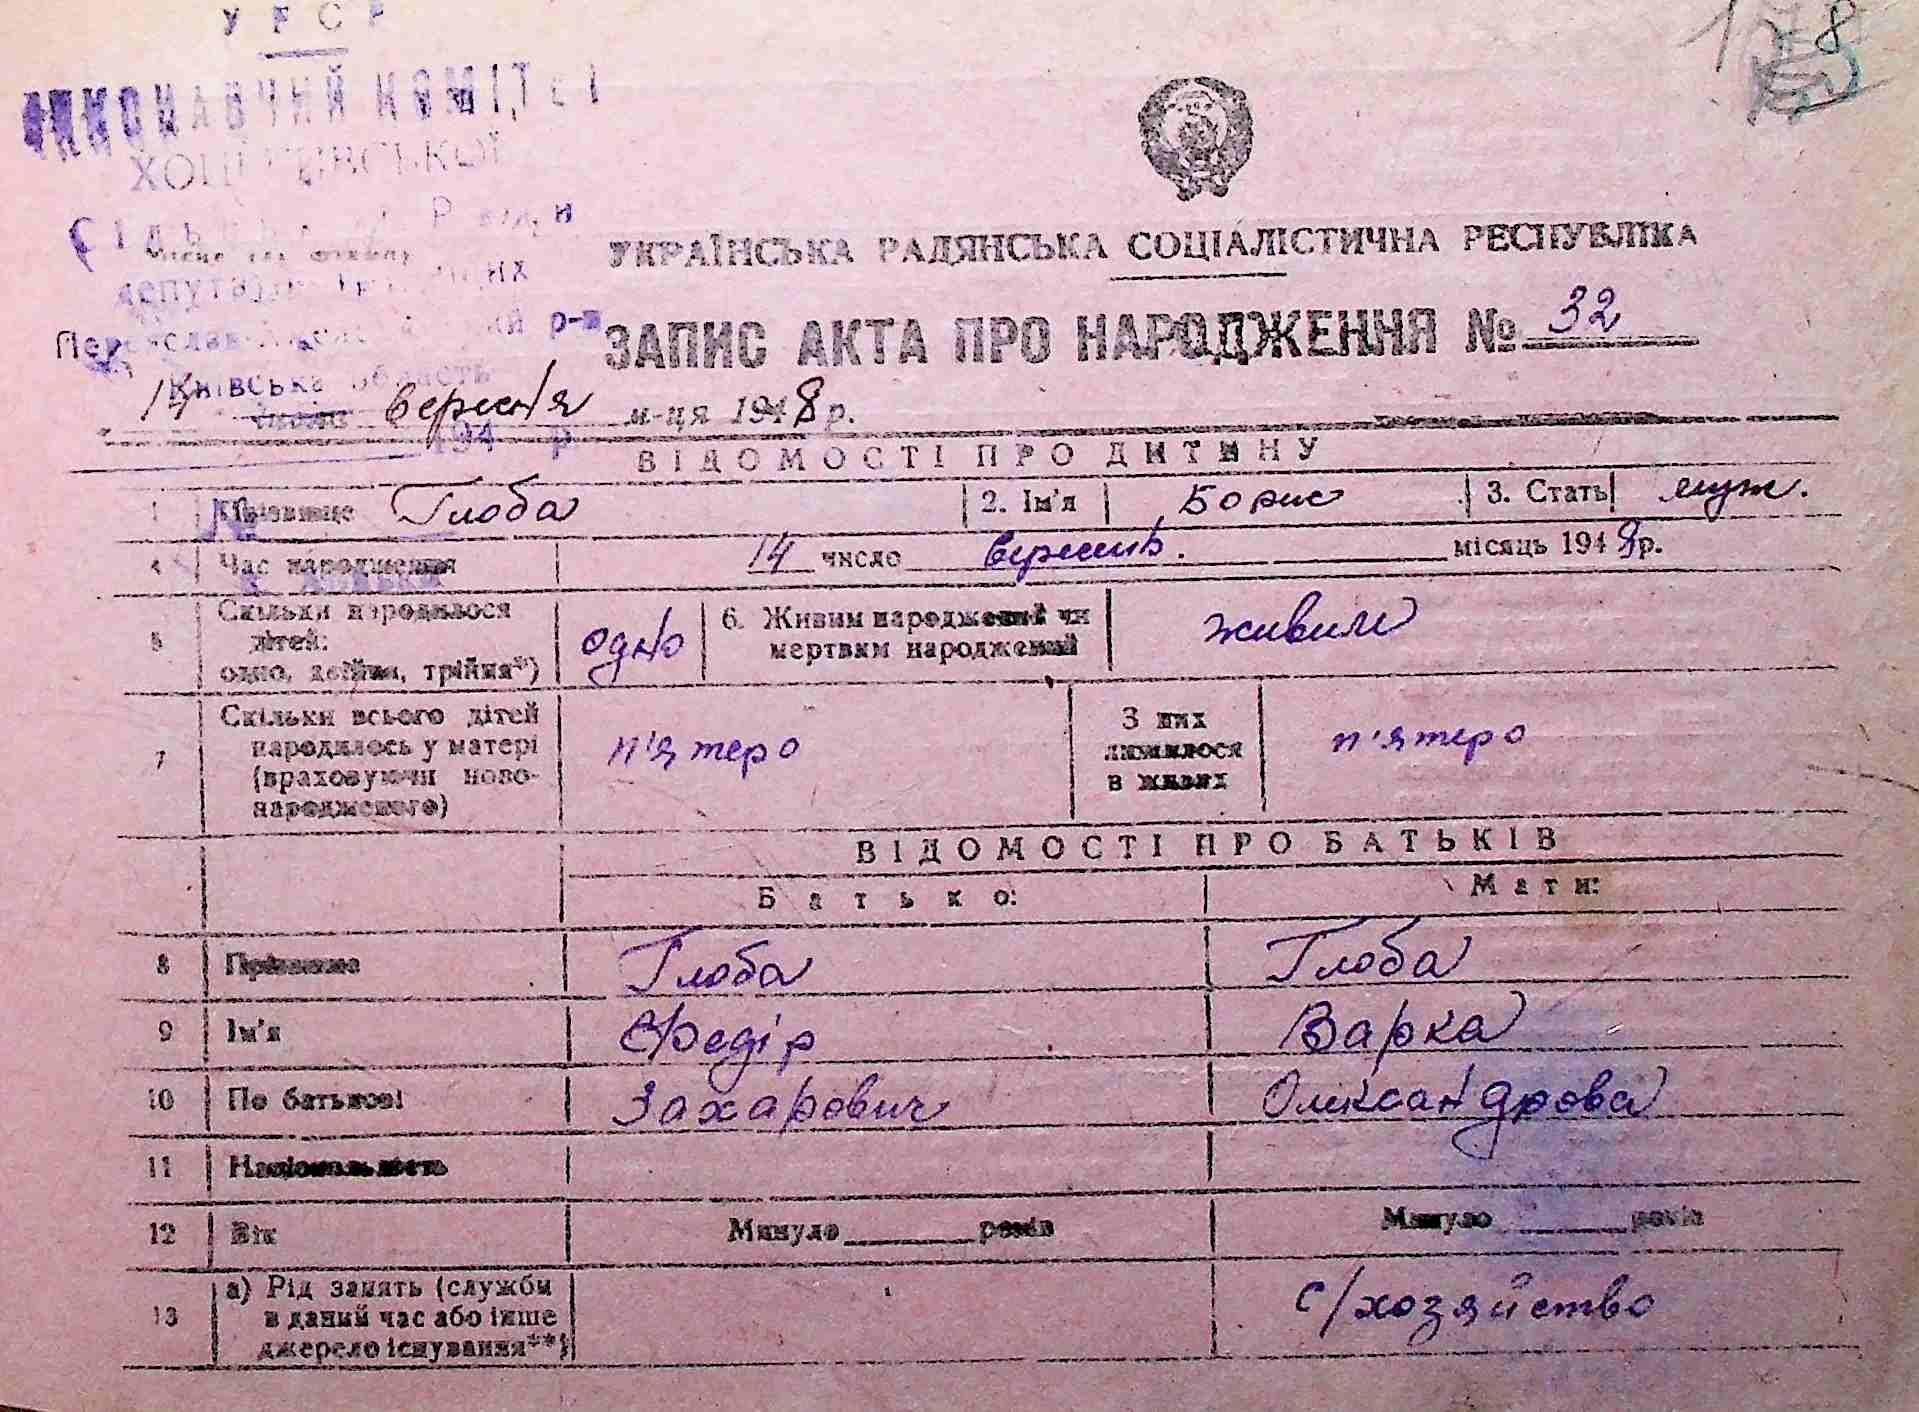 УРСР
178
ВИКОНАВЧИЙ КОМІТЕТ
Київська область
194 р.
УКРАЇНСЬКА РАДЯНСЬКА СОЦІАЛІСТИЧНА РЕСПУБЛІКА
ЗАПИС АКТА ПРО НАРОДЖЕННЯ № 32
14 вересня м-ця 1948 р.
ВІДОМОСТІ ПРО ДИТИНУ
1 Прізвище Глоба 2. Ім'я Борис 3. Стать муж.
4 Час народження 14 число вересня. місяць 1948 р.
5 Скільки народилося дітей: одно, двійня, трійня*) одно 6. Живим народжений чи мертвим народжений живим
7 Скільки всього дітей народилось у матері (враховуючи новонародженого) п'ятеро З них лишилося в живих п'ятеро
ВІДОМОСТІ ПРО БАТЬКІВ
Батько: Мати:
8 Прізвище Глоба Глоба
9 Ім'я Федір Варка
10 По батькові Захарович Олександрова
11 Національність
12 Вік Минуло ______ років Минуло ______ років
13 а) Рід занять (служби в даний час або інше джерело існування**) с/хозяйство